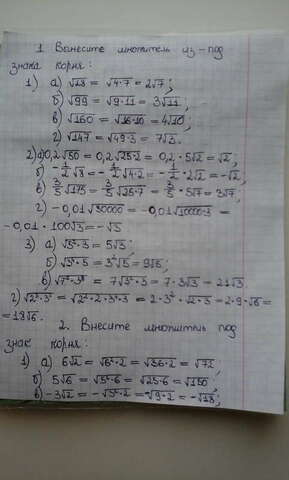 1. Вынесите множитель из-под
знака корня:
1) а) √28 = √4·7 = 2√7;
б) √99 = √9·11 = 3√11;
в) √160 = √16·10 = 4√10;
г) √147 = √49·3 = 7√3.
2) а) 0,2√50 = 0,2√25·2 = 0,2·5√2 = √2;
б) -1/2√8 = -1/2√4·2 = -1/2·2√2 = -√2;
в) 3/5√175 = 3/5√25·7 = 3/5·5√7 = 3√7;
г) -0,01√30000 = -0,01√10000·3 =
-0,01·100√3 = -√3
3) а) √5²·3 = 5√3;
в) √7²·3³ = 7√3²·3 = 7·3√3 = 21√3
г) √2³·3⁵ = √2²·2·3⁴·3 = 2·3²·√2·3 = 2·9·√6 =
= 18√6.
2. Внесите множитель под
знак корня:
1) а) 6√2 = √6²·2 = √36·2 = √72;
б) 5√6 = √5²·6 = √25·6 = √150;
в) -3√2 = -√3²·2 = -√9·2 = -√18;